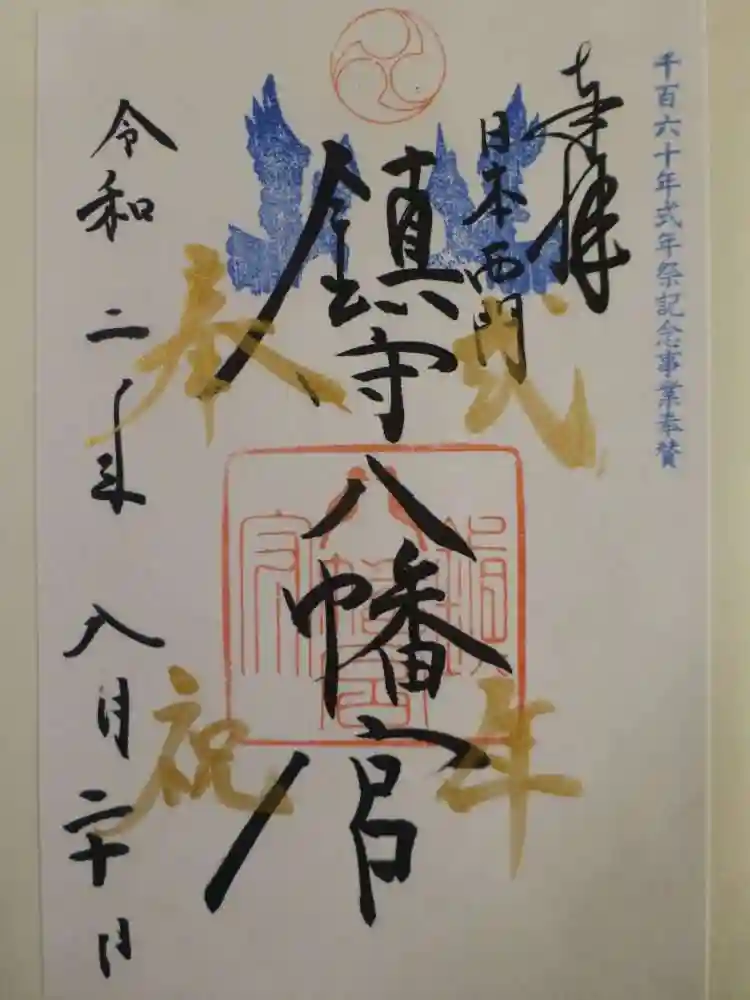 千百六十年式年祭記念事業奉賛
奉拝
日本西門
鎮守八幡宮
式年
奉祝
令和二年八月二十日
鎮守八幡宮